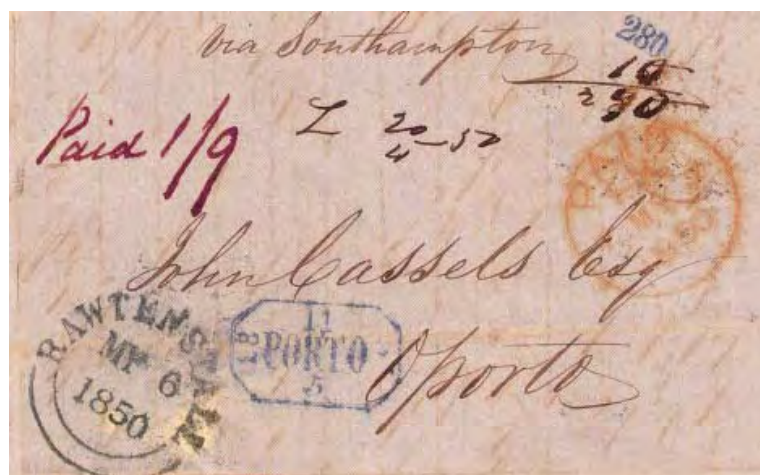 via Southampton
280
10
290
Paid 1/9
L 20/4-52
PAID
John Cassels Esq
Oporto
RAWTENSTALL
MY 6
1850
11
PORTO
5